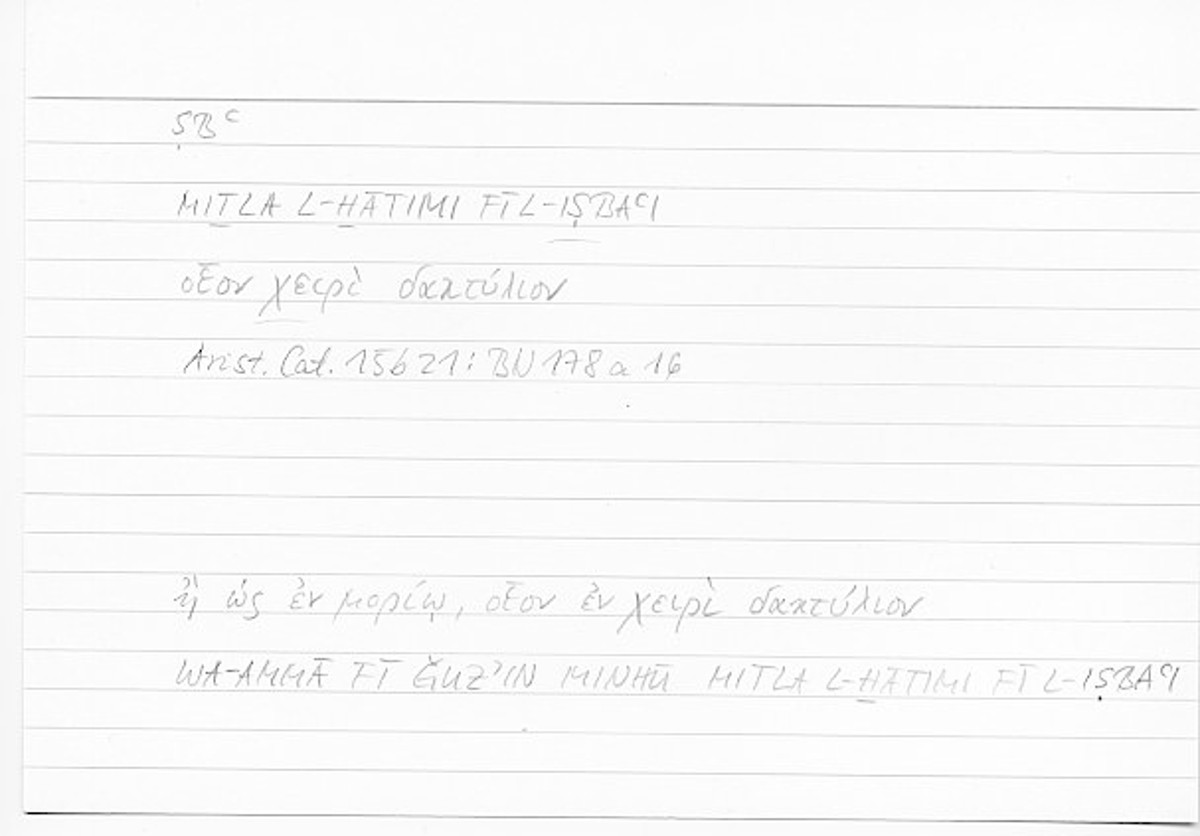 ṢBʿ
MIṮLA L-ḪĀTIMI FĪ L-IṢBAʿI
οἷον χειρὶ δακτύλιον
Arist. Cat. 15b21: BN 178 a 16
ἢ ὡς ἐν μορίῳ, οἷον ἐν χειρὶ δακτύλιον
WA-AMMĀ FĪ ǦUZʾIN MINHŪ MITLA L-ḪĀTIMI FĪ L-IṢBAʿI